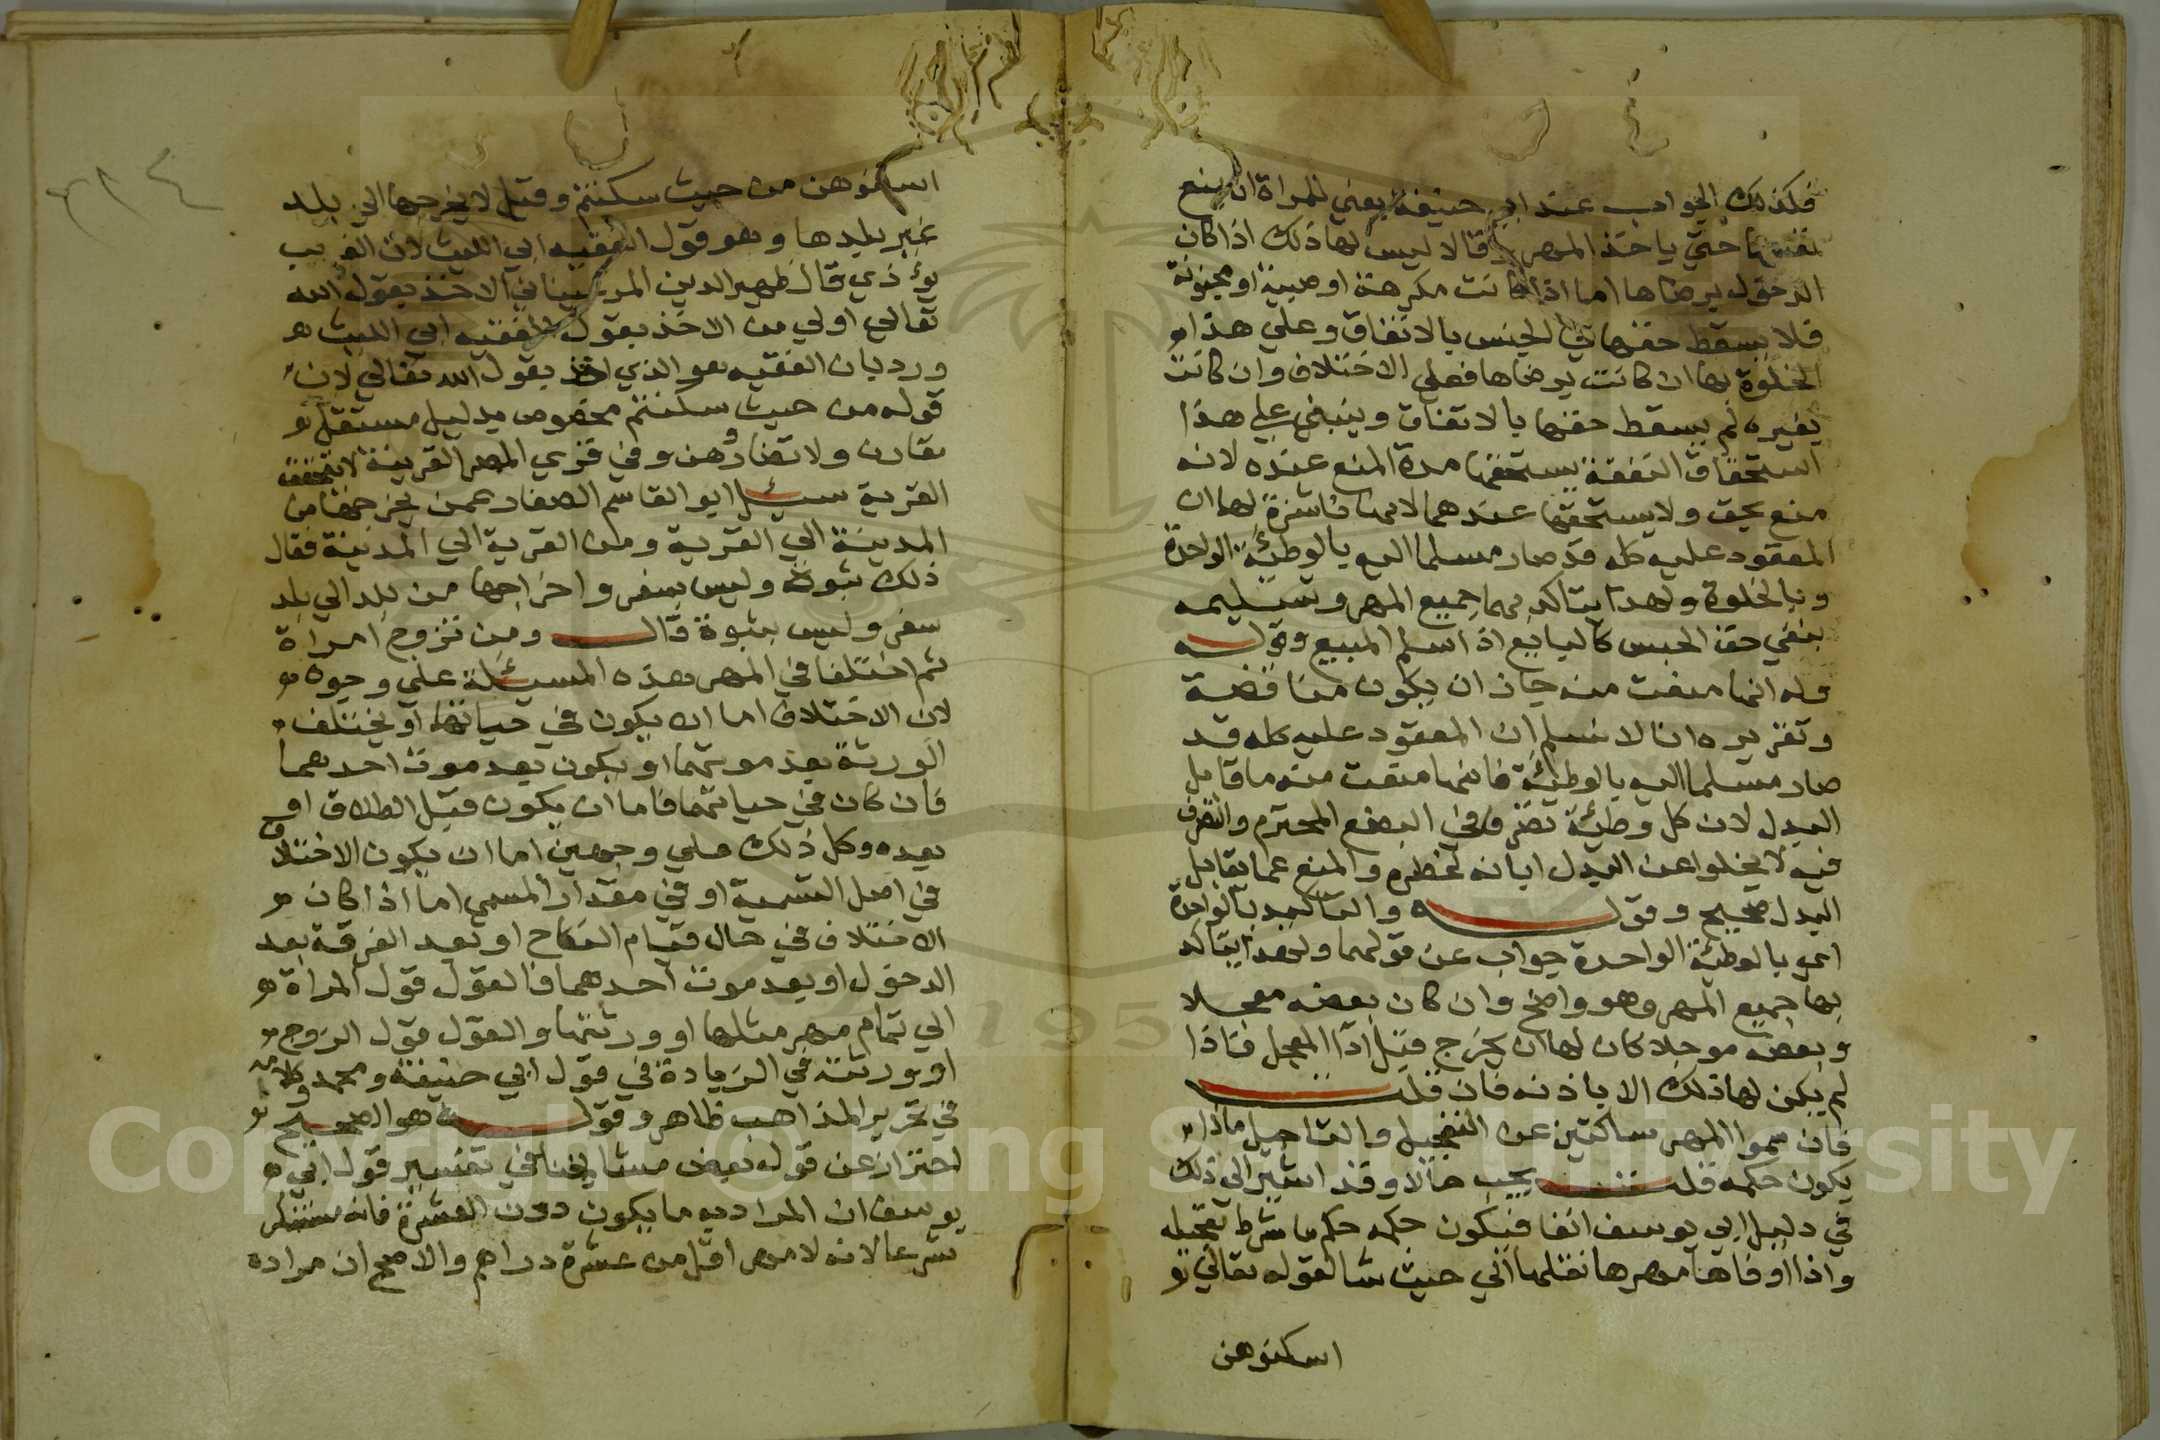 فكذلك الجواب عند ابي حنيفة يعني للمراة ان يمنع
نفسها حتي ياخذ المهر وقالا ليس لها ذلك اذا كان
الدخول برضاها اما اذا كانت مكرهة او صبية او مجنونة
فلا يسقط حقها في الحبس بالاتفاق وعلي هذا
الخلوة بها ان كانت برضاها فعلي الاختلاف وان كانت
بغيره لم يسقط حقها بالاتفاق وينبغي علي هذا
استحقاق النفقة يستحقها مدة المنع عنده لانه
منع بحق ولا يستحقها عندهما لانها ناشزة لهما ان
المعقود عليه كله قد صار مسلما اليه بالوطئة الواحدة
وبالخلوة ولهذا يتاكد بهما جميع المهر وتسليمه
ينفي حق الحبس كالبايع اذا سلم المبيع وقوله
وله انها منعت منه جاز ان يكون مناقضة
وتقريره انا لا نسلم ان المعقود عليه كله قد
صار مسلما اليه بالوطئة فانها منعت منه ما قابل
البدل لان كل وطئة تصرف في البضع المحترم والتصرف
فيه لا يخلوا عن البدل ابانة لخطره والمنع عما يقابل
البدل صحيح وقوله والتاكيد بالواحدة
اي بالوطئة الواحدة جواب عن قولهما ولهذا يتاكد
بها جميع المهر وهو واضح وان كان بعضه معجلا
وبعضه موجلا كان لها ان يخرج قبل ادا المعجل فاذا
لم يكن لها ذلك الا باذنه فان قلت
فان سموا المهر ساكتين عن التعجيل والتاجيل ماذا
يكون حكمه قلت يجب حالا وقد اشير الي ذلك
في دليل ابي يوسف انفا فيكون حكمه حكم ما شرط تعجيله
واذا اوفاها مهرها نقلها الي حيث شا لقوله تعالي
اسكنوهن
اسكنوهن من حيث سكنتم وقيل لا يخرجها الي بلد
غير بلدها وهو قول الفقيه ابي الليث لان الغريب
يؤذي قال ظهير الدين المرغيناني الاخذ بقول الله
تعالي اولي من الاخذ بقول الفقيه ابي الليث
ورد بان الفقيه هو الذي اخذ بقول الله تعالي لان
قوله من حيث سكنتم مخصوص بدليل مستقل
مقارن ولا تضاروهن وفي قري المصر القريبة لا تتحقق
الغربة سئل ابو القاسم الصفار عمن يخرجها من
المدينة الي القرية ومن القرية الي المدينة فقال
ذلك تبوة وليس بسفر واخراجها من بلد الي بلد
سفر وليس بتبوة قال ومن تزوج امراة
ثم اختلفا في المهر هذه المسئلة علي وجوه
لان الاختلاف اما ان يكون في حياتهما او يختلف
الورثة بعد موتهما او يكون بعد موت احدهما
فان كان في حياتهما فاما ان يكون قبل الطلاق او
بعده وكل ذلك علي وجهين اما ان يكون الاختلاف
في اصل التسمية او في مقدار المسمي اما اذا كان
الاختلاف في حال قيام النكاح او بعد الفرقة بعد
الدخول او بعد موت احدهما فالقول قول المراة
الي تمام مهر مثلها او ورثتها والقول قول الزوج
او ورثته في الزيادة في قول ابي حنيفة ومحمد وكلامه
في تحرير المذاهب ظاهر وقوله هو الصحيح
احتراز عن قول بعض مشايخنا في تفسير قول ابي
يوسف ان المراد به ما يكون دون العشرة فانه مستنكر
شرعا لانه لا مهر اقل من عشرة دراهم والاصح ان مراده